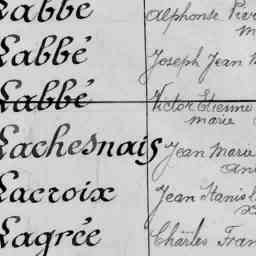 Labbé Alphonse Pier
Labbé Joseph Jean M
Labbé Victor Etienne
Marie
Lachesnais Jean Marie
Lacroix Jean Stanis
Lagrée Charles Fran